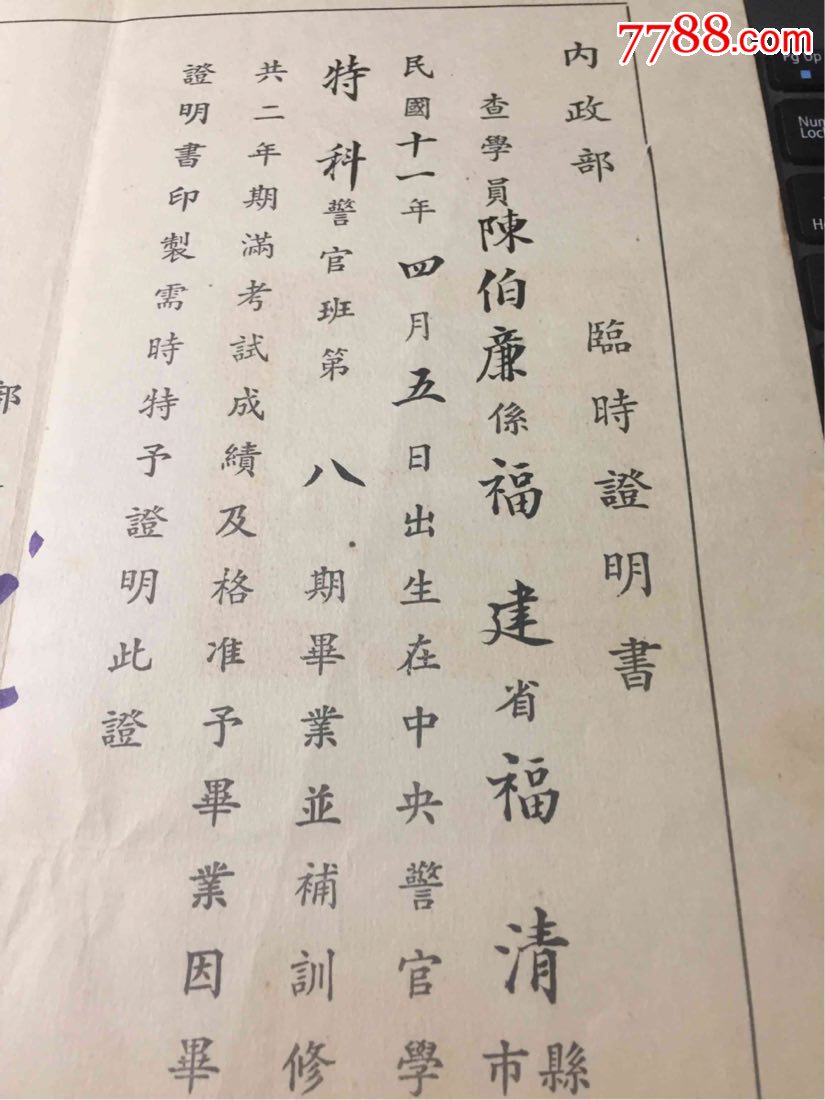 7788.com
內政部 臨時證明書
查學員陳伯廉係福建省福清縣市
民國十一年四月五日出生在中央警官學
特科警官班第八期畢業並補訓修
共二年期滿考試成績及格准予畢業因畢
證明書印製需時特予證明此證
部
Pg Up
Num
Lock